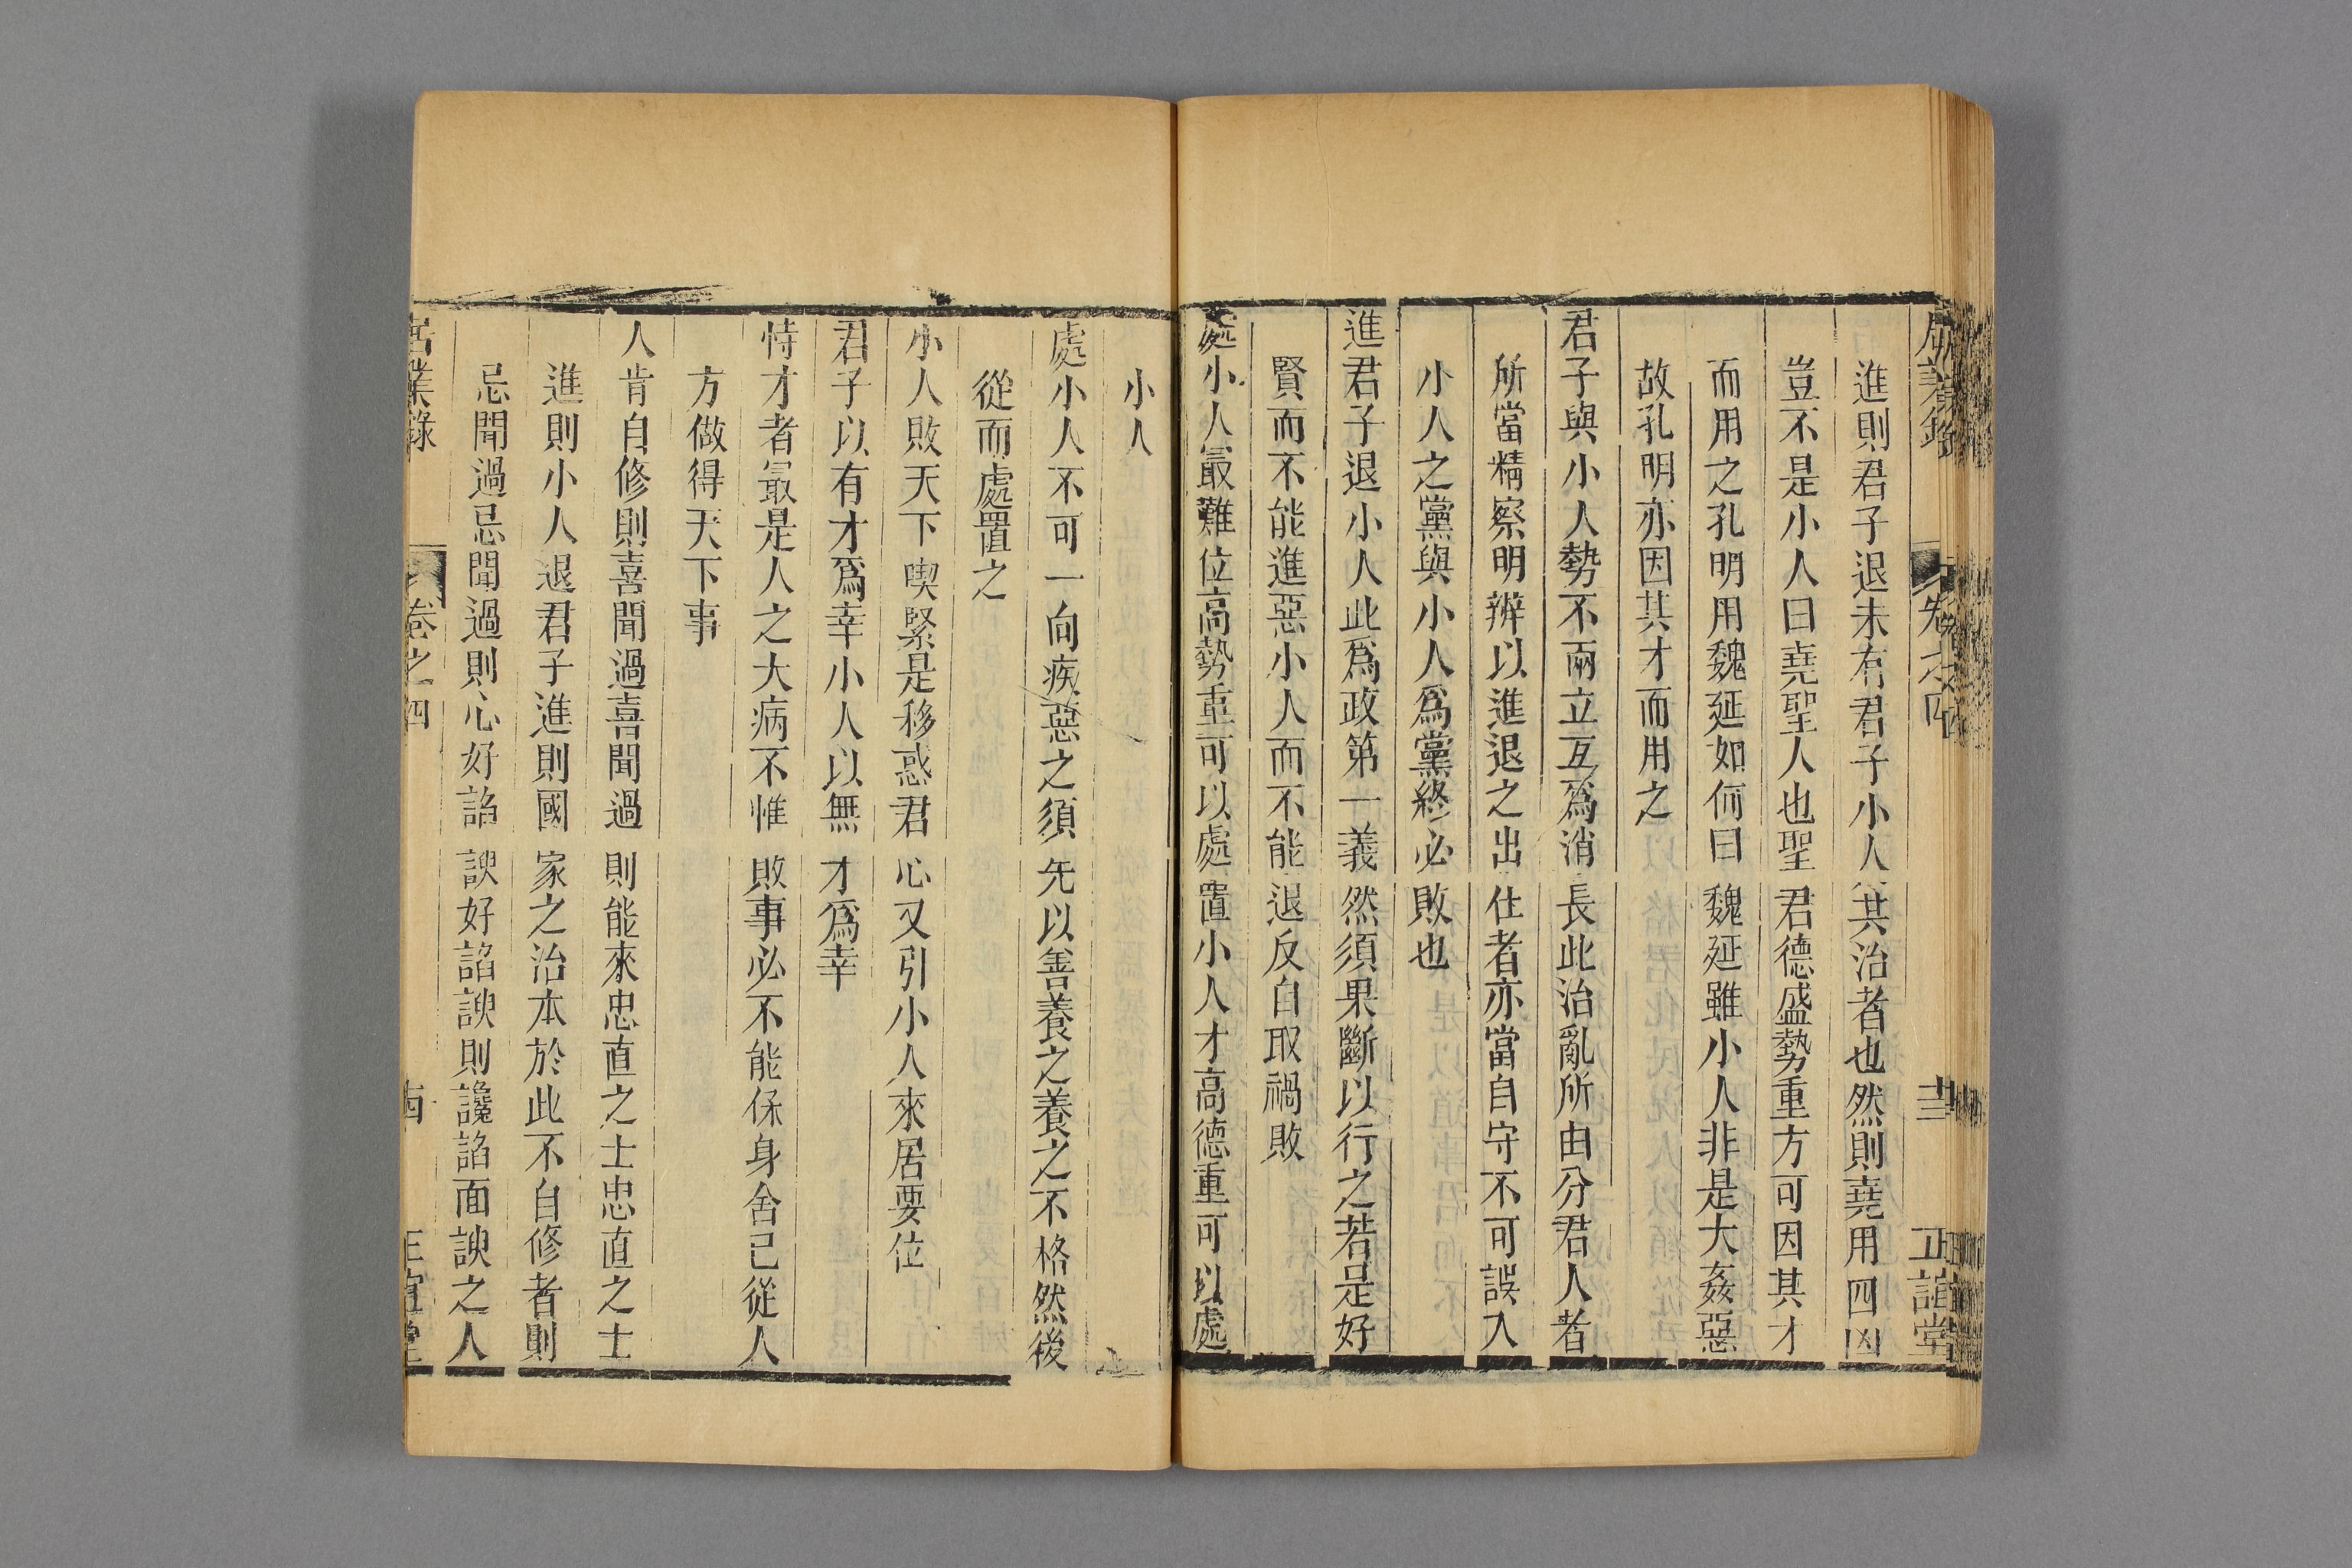 居業錄 卷之四 十三 正誼堂
進則君子退未有君子小人共治者也然則堯用四凶
豈不是小人曰堯聖人也聖君德盛勢重方可因其才
而用之孔明用魏延如何曰魏延雖小人非是大姦惡
故孔明亦因其才而用之
君子與小人勢不兩立互爲消長此治亂所由分君人者
所當精察明辨以進退之出仕者亦當自守不可誤入
小人之黨與小人爲黨終必敗也
進君子退小人此爲政第一義然須果斷以行之若是好
賢而不能進惡小人而不能退反自取禍敗
處小人最難位高勢重可以處置小人才高德重可以處
小人
處小人不可一向疾惡之須先以善養之養之不格然後
從而處置之
小人敗天下喫緊是移惑君心又引小人來居要位
君子以有才爲幸小人以無才爲幸
恃才者最是人之大病不惟敗事必不能保身舍己從人
方做得天下事
人肯自修則喜聞過喜聞過則能來忠直之士忠直之士
進則小人退君子進則國家之治本於此不自修者則
忌聞過忌聞過則心好諂諛好諂諛則讒諂面諛之人
居業錄 卷之四 十四 正誼堂